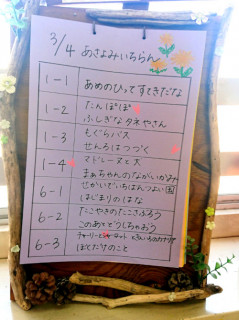 3/4 あさよみいちらん
1-1 あめのひってすてきだな
1-2 たんぽぽ
ふしぎなタネやさん
1-3 もぐらバス
せんろはつづく
1-4 マドレーヌと犬
まあちゃんのながいかみ
6-1 せかいでいちばんつよい国
はじまりのはな
6-2 たこやきのたこさぶろう
このあとどうしちゃおう
6-3 チャーリーと
ぼくだけのこと